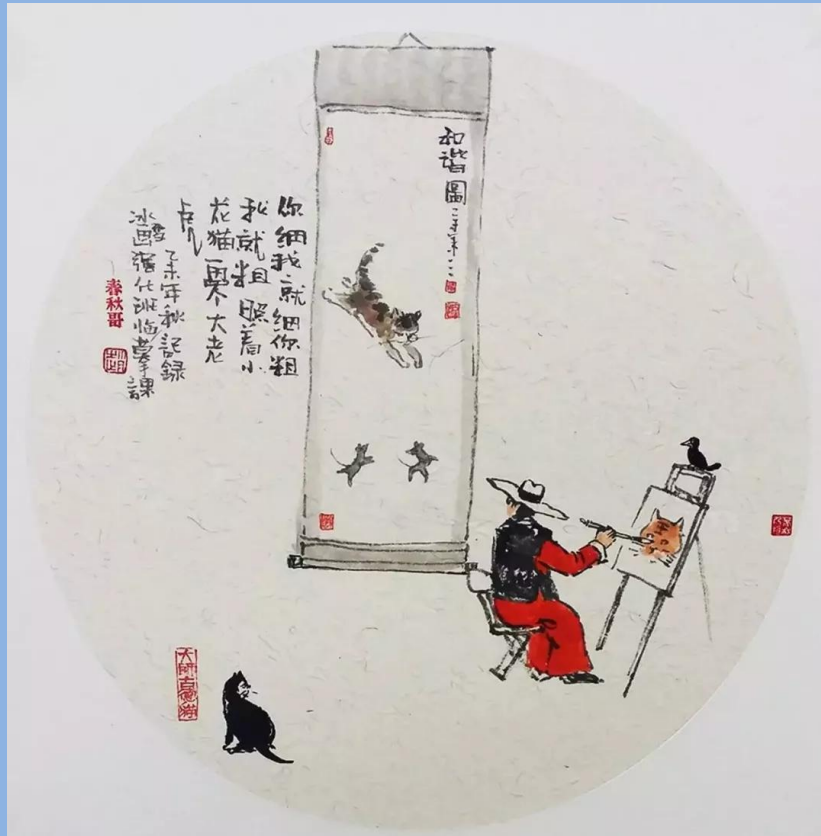 和谐圖
你细我就细你粗
我就粗 照着小
花猫画个大老
虎
乙未年秋記録
冰雪画强化班临摹課
春秋哥